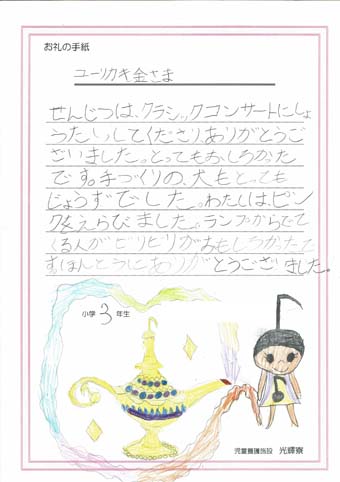 お礼の手紙
ユーリカキ金さま
せんじつは、クラシックコンサートにしょ
うたいしてくださりありがとうご
ざいました。とってもおもしろかった
です。手づくりの、犬もとっても
じょうずでした。わたしは、ピン
クをえらびました。ランプからでて
くる人がビリビリがおもしろかったで
すほんとうにありがとうございました。
小学 3 年生
児童養護施設 光輝寮